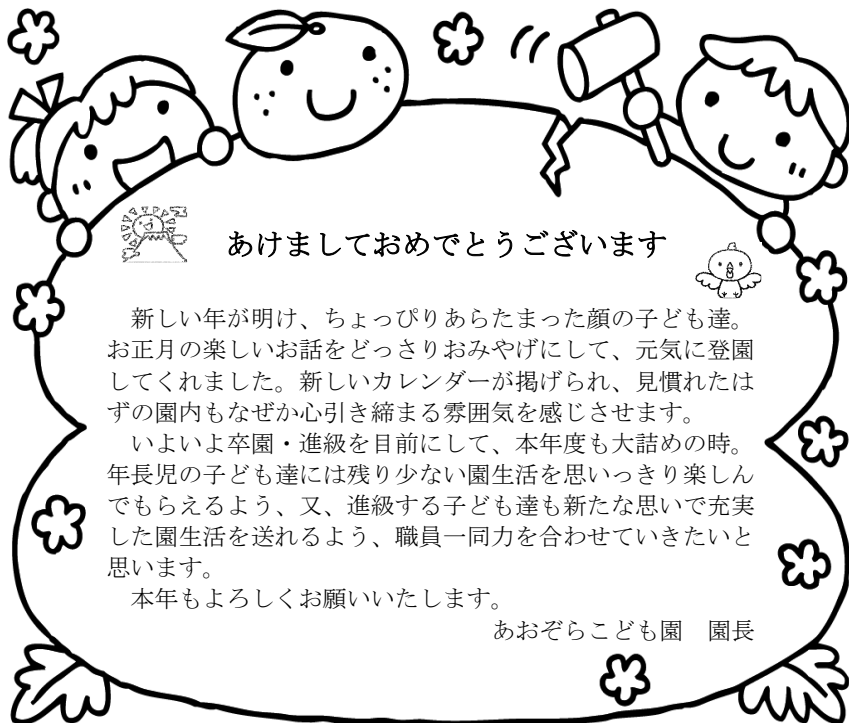 あけましておめでとうございます
　新しい年が明け、ちょっぴりあらたまった顔の子ども達。
お正月の楽しいお話をどっさりおみやげにして、元気に登園
してくれました。新しいカレンダーが掲げられ、見慣れたは
ずの園内もなぜか心引き締まる雰囲気を感じさせます。
　いよいよ卒園・進級を目前にして、本年度も大詰めの時。
年長児の子ども達には残り少ない園生活を思いっきり楽しん
でもらえるよう、又、進級する子ども達も新たな思いで充実
した園生活を送れるよう、職員一同力を合わせていきたいと
思います。
　本年もよろしくお願いいたします。
あおぞらこども園　園長